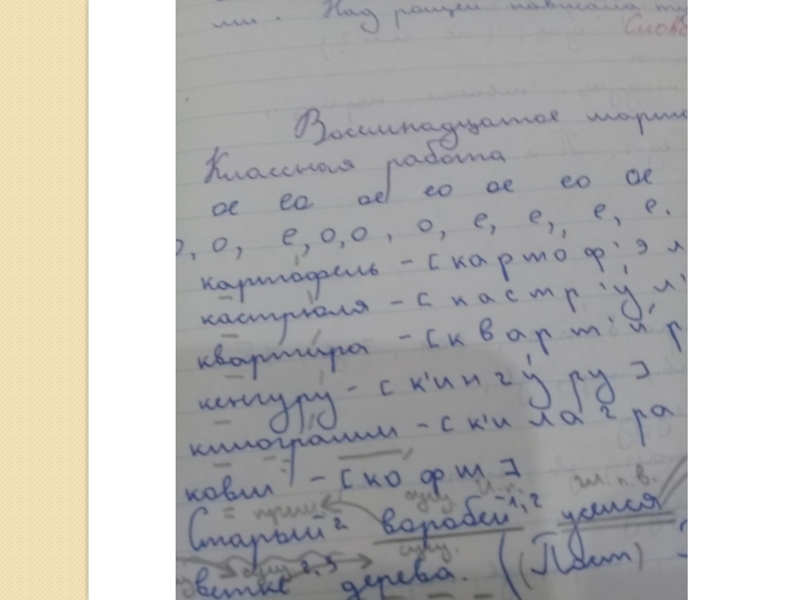 ми. Над рощей нависала ту
Слово
Восемнадцатое марта
Классная работа
ое ео ое ео ое ео ое
о, о, е, о, о, о, е, е, е, е.
картофель - [картоф'эл
кастрюля - [кастр'ул'
квартира - [кварт'ир
кенгуру - [к'ингуру]
килограмм - [к'илагра
ковш - [кофш]
прил. сущ. И.п. гл. п.в.
Старый² воробей¹,² уселся
сущ. сущ.
ветке 2,3 дерева. (Пост)